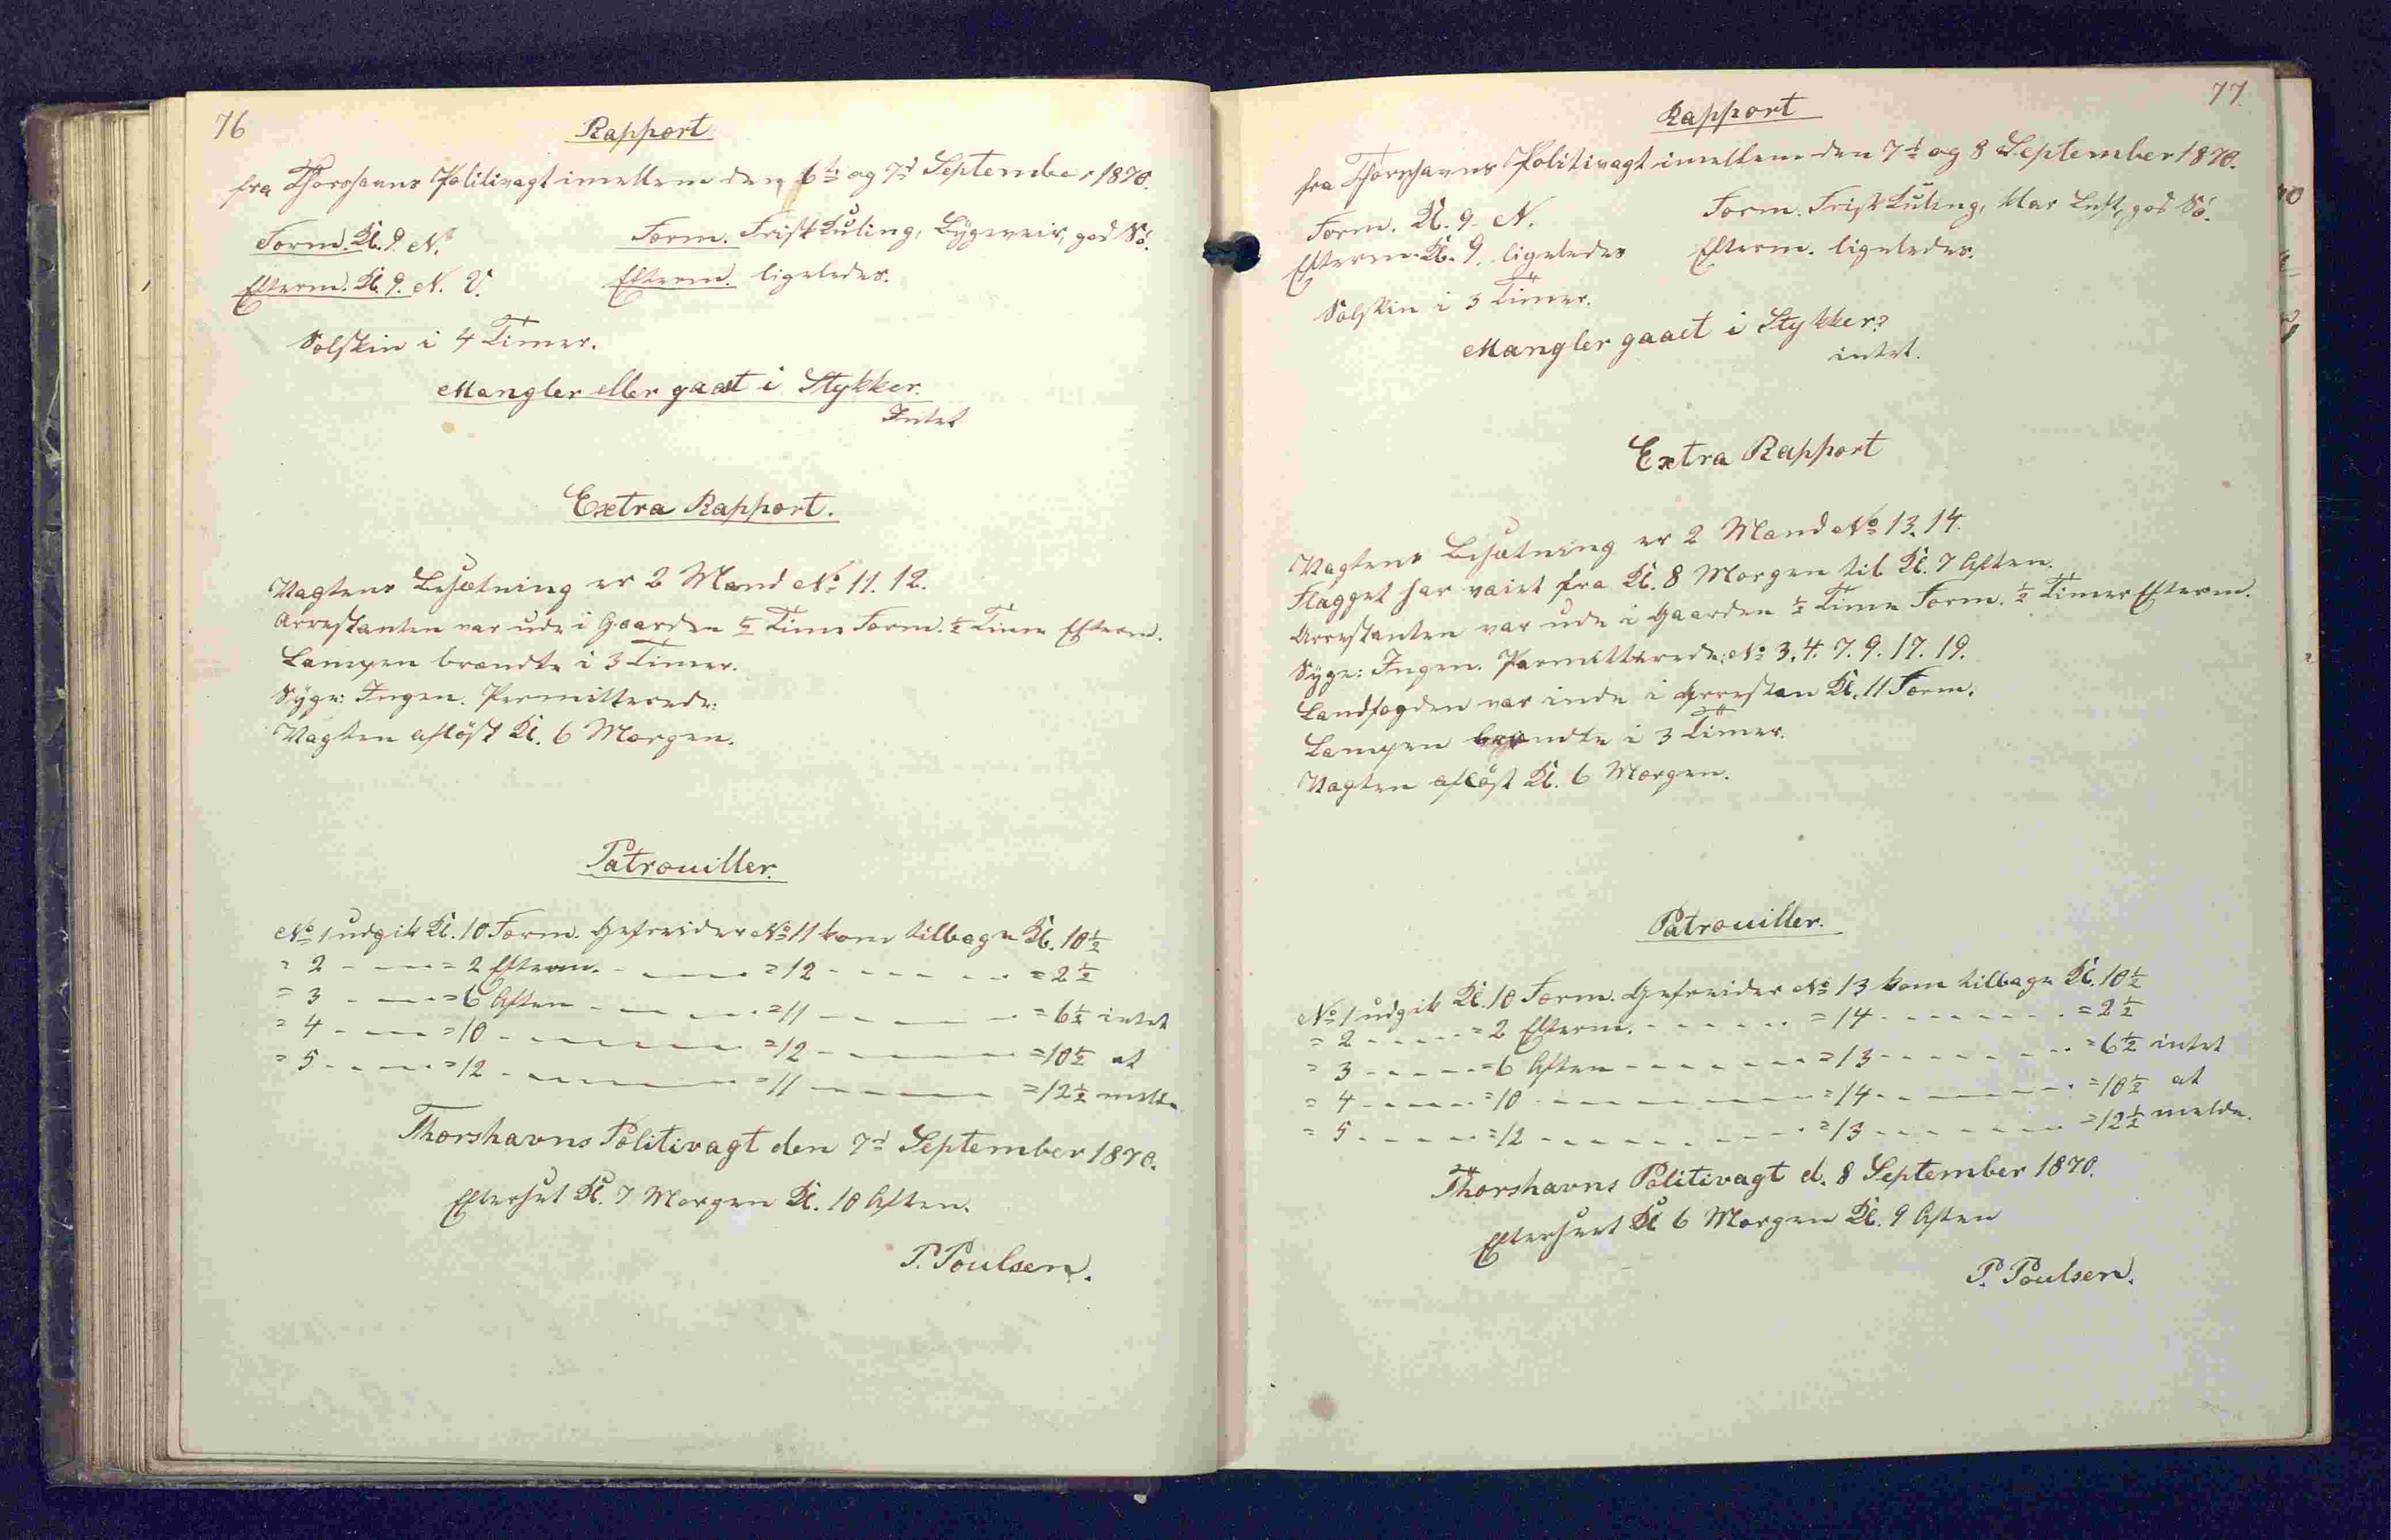 76
Rapport
fra Thorshavns Politivagt imellem den 6te og 7d September 1870.
Form. Kl. 9. N.
Form. Frisk Kuling, Bygeveir, god Sö.
Efterm. Kl. 9. N. V.
Efterm. ligeledes.
Solskin i 4 Timer.
Mangler eller gaaet i Stykker.
Intet
Extra Rapport.
Vagtens Besætning er 2 Mand No 11. 12.
Arrestanten var ude i Gaarden ½ Time Form. ½ Time Efterm.
Lampen brændte i 3 Timer.
Syge: Ingen. Permitterede:
Vagten aflöst Kl. 6 Morgen.
Patrouiller.
No 1 udgik Kl. 10 Form. Gefreider No 11 kom tilbage Kl. 10½
= 2 - - - = 2 Efterm. - - - = 12 - - - = 2½
= 3 - - - = 6 Aften - - - = 11 - - - = 6½ intet
= 4 - - - = 10 - - - = 12 - - - = 10½ at
= 5 - - - = 12 - - - = 11 - - - = 12½ melde
Thorshavns Politivagt den 7d September 1870.
Efterset Kl. 7 Morgen Kl. 10 Aften.
P. Poulsen.
77.
Rapport
fra Thorshavns Politivagt imellem den 7d og 8 September 1870.
Form. Kl. 9. N.
Form. Frisk Kuling, klar Luft, god Sö.
Efterm. Kl. 9. ligeledes
Efterm. ligeledes.
Solskin i 3 Timer.
Mangler gaaet i Stykker?
intet.
Extra Rapport
Vagtens Besætning er 2 Mand No 13. 14.
Flagget har vaiet fra Kl. 8 Morgen til Kl. 7 Aften.
Arrestanten var ude i Gaarden ½ Time Form. ½ Timer Efterm.
Syge: Ingen. Permitterede: No 3. 4. 7. 9. 17. 19.
Landfogden var inde i Arresten Kl. 11 Form.
Lampen brændte i 3 Timer.
Vagten aflöst Kl. 6 Morgen.
Patrouiller.
No 1 udgik Kl. 10 Form. Gefreider No 13 kom tilbage Kl. 10½
= 2 - - - = 2 Efterm. - - - = 14 - - - = 2½
= 3 - - - = 6 Aften - - - = 13 - - - = 6½ intet
= 4 - - - = 10 - - - = 14 - - - = 10½ at
= 5 - - - = 12 - - - = 13 - - - = 12½ melde.
Thorshavns Politivagt d. 8 September 1870.
Efterseet Kl 6 Morgen Kl. 9 Aften
P. Poulsen.